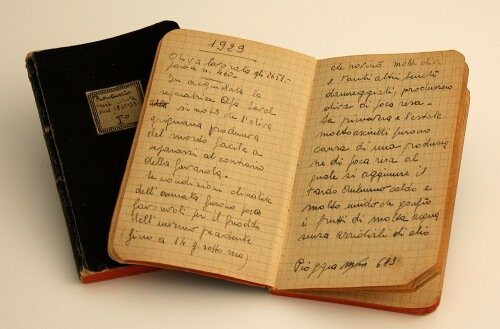 1929
Oliva lavorata ql. 2651-
In acquistata la
separatrice Alfa Laval
si notò che l'oliva
produceva
del morchio facile a
separarsi al contrario
della
Le condizioni climatiche
dell'annata furono poco
favorevoli per il freddo
dell'inverno precedente
(fino a 14 g. sotto zero)
che rovinò molte olive
e tanti altri benchè
danneggiati, produssero
oliva di poca resa.
La primavera e l'estate
molto asciutti furono
causa di una produzio
ne di poca resa al
quale si aggiunse il
tardo autunno caldo e
molto umido che gonfiò
i frutti di molta acqua
senza arricchirli di olio
Pioggia m/m 683